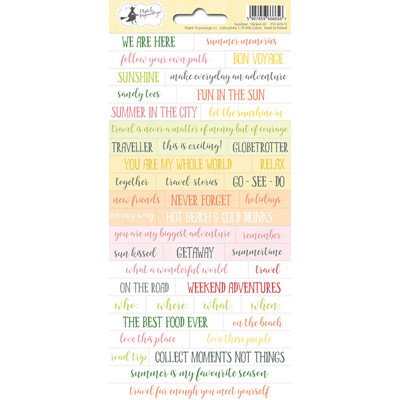 WE ARE HERE summer memories
follow your own path BON VOYAGE
SUNSHINE make everyday an adventure
sandy toes FUN IN THE SUN
SUMMER IN THE CITY let the sunshine in
travel is never a matter of money but of courage
TRAVELLER this is exciting! GLOBETROTTER
YOU ARE MY WHOLE WORLD RELAX
together travel stories GO - SEE - DO
new friends NEVER FORGET holidays
on my way HOT BEACH & COLD DRINKS
you are my biggest adventure remember
sun kissed GETAWAY summertime
what a wonderful world travel
ON THE ROAD WEEKEND ADVENTURES
who: where: what: when:
THE BEST FOOD EVER on the beach
love this place love these people
road trip COLLECT MOMENTS NOT THINGS
summer is my favourite season
travel far enough you meet yourself